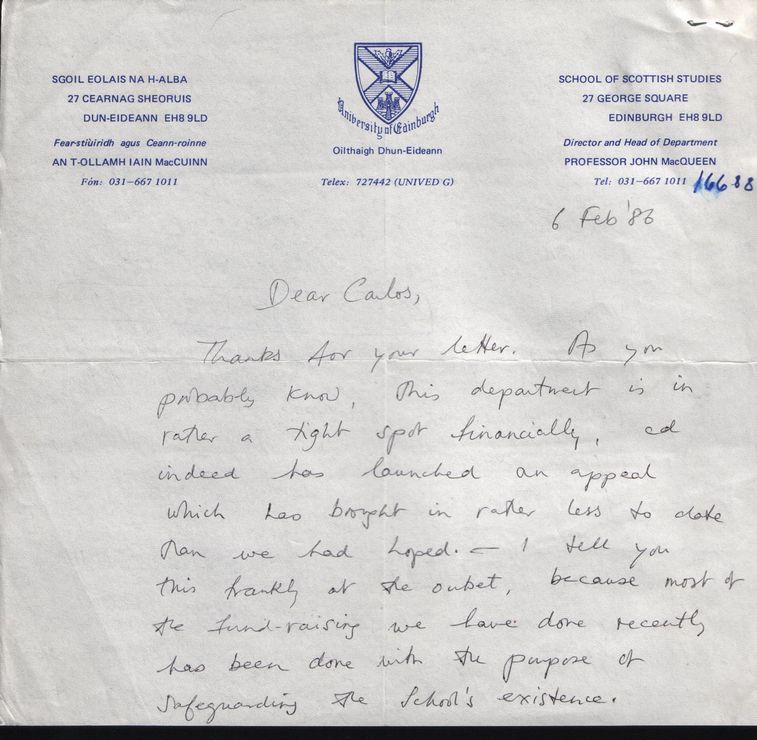 SGOIL EOLAIS NA H-ALBA
27 CEARNAG SHEORUIS
DUN-EIDEANN EH8 9LD
Fear-stiùiridh agus Ceann-roinne
AN T-OLLAMH IAIN MacCUINN
Fón: 031-667 1011
University of Edinburgh
Oilthaigh Dhun-Eideann
Telex: 727442 (UNIVED G)
SCHOOL OF SCOTTISH STUDIES
27 GEORGE SQUARE
EDINBURGH EH8 9LD
Director and Head of Department
PROFESSOR JOHN MacQUEEN
Tel: 031-667 1011 16688
6 Feb '86
Dear Carlos,
Thanks for your letter. As you
probably know, this department is in
rather a tight spot financially, and
indeed has launched an appeal
which has brought in rather less to date
than we had hoped. — I tell you
this frankly at the outset, because most of
the fund-raising we have done recently
has been done with the purpose of
safeguarding the School's existence.